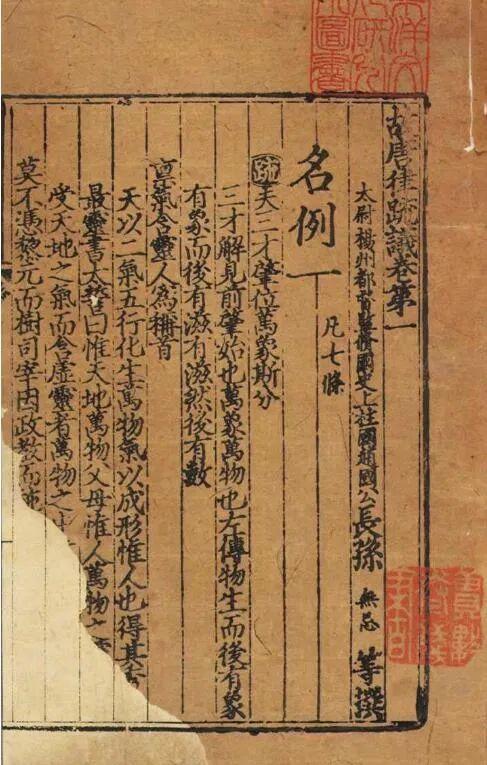 故唐律疏議卷第一
太尉楊州都督監脩國史上柱國趙國公長孫無忌等撰
名例一 凡七條
疏夫三才肇位萬象斯分
三才解見前肇始也萬象萬物也左傳物生而後有象
有象而後有滋有滋然後有數
稟氣含靈人爲稱首
天以二氣五行化生萬物氣以成形惟人也得其
最靈書太誓曰惟天地萬物父母惟人萬物之
受天地之氣而含虛靈者萬物之
莫不憑黎元而樹司宰因政教而